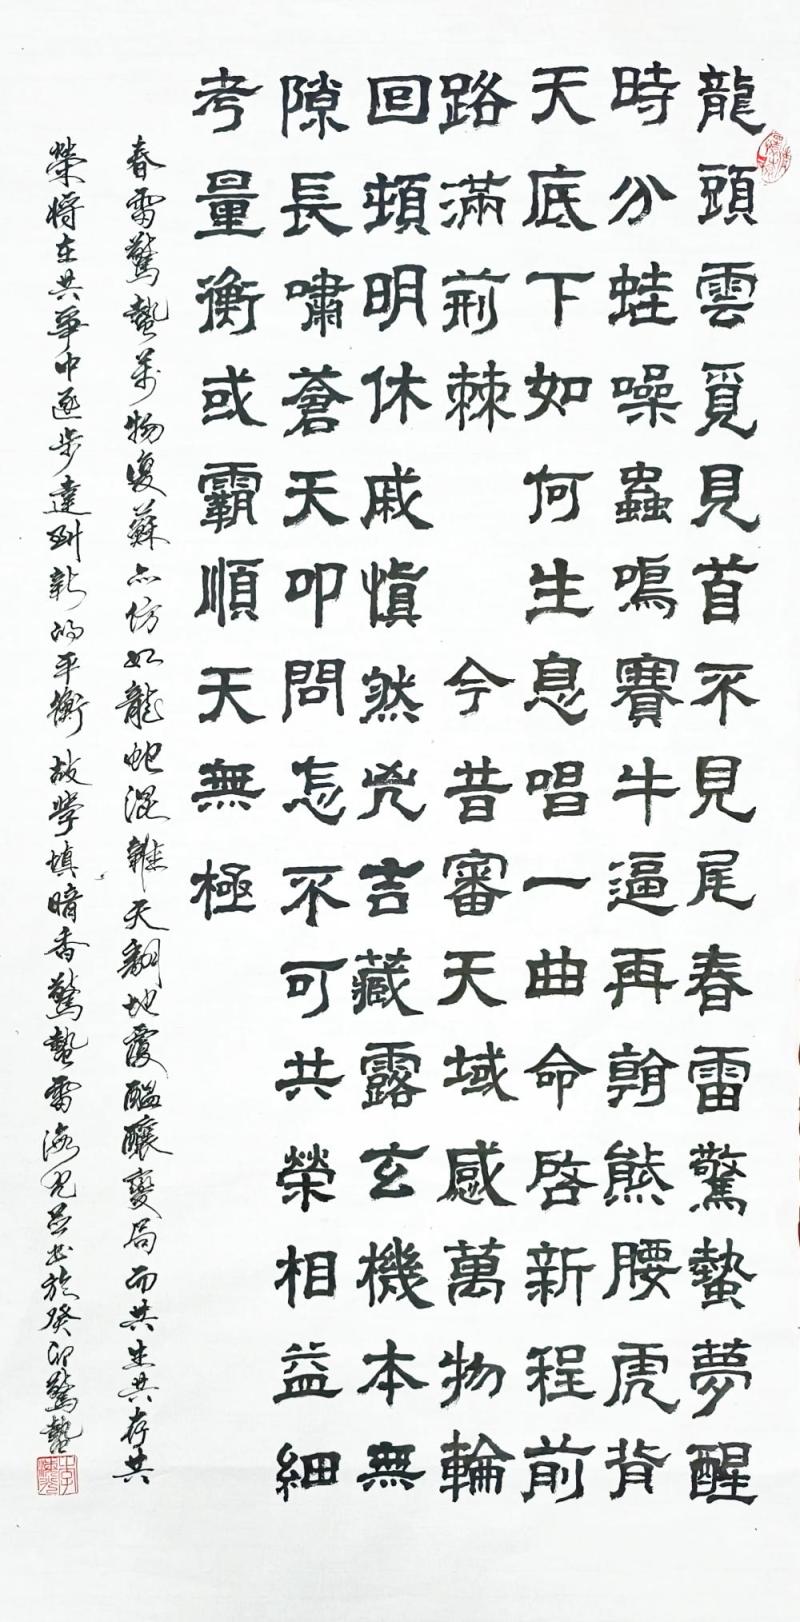 龍頭雲覓見首不見尾春雷驚蟄夢醒
時分蛙噪蟲鳴賽牛逼再翱熊腰虎背
天底下如何生息唱一曲命啓新程前
路滿荊棘 今昔審天域感萬物輪
回頓明休戚慎然兇吉藏露玄機本無
隙長嘯蒼天叩問怎不可共榮相益細
考量衡或霸順天無極
春雷驚蟄萬物復蘇亦仿如龍蛇混雜天翻地覆醞釀變局而共生共存共
榮將在共爭中逐步達到新的平衡故學填暗香驚蟄雷海兄並書於癸卯驚蟄